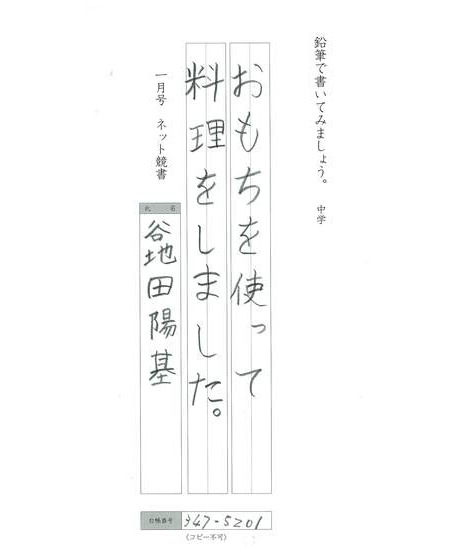 鉛筆で書いてみましょう。 中学
おもちを使って
料理をしました。
一月号 ネット競書
氏名
谷地田陽基
台帳番号 347-5201
(コピー不可)